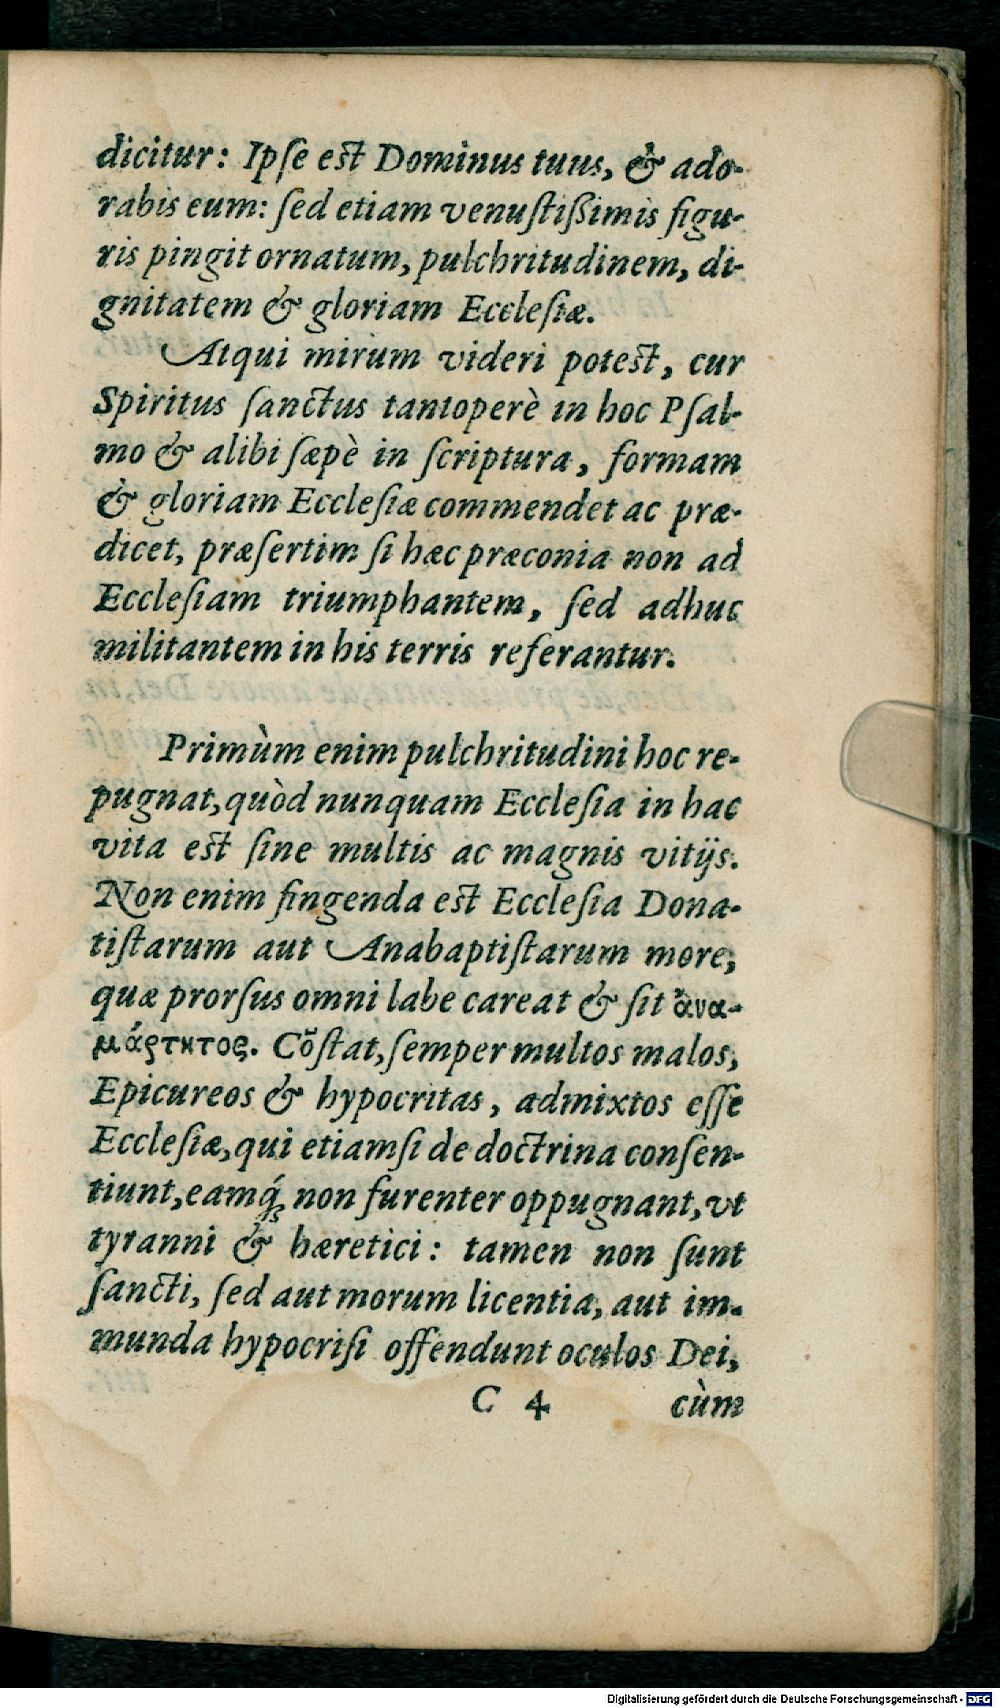 dicitur: Ipſe est Dominus tuus, & ado-
rabis eum: ſed etiam venuſtiſſimis figu-
ris pingit ornatum, pulchritudinem, di-
gnitatem & gloriam Eccleſiæ.
Atqui mirum videri potest, cur
Spiritus ſanctus tantoperè in hoc Pſal-
mo & alibi ſæpè in ſcriptura, formam
& gloriam Eccleſiæ commendet ac præ-
dicet, præſertim ſi hæc præconia non ad
Eccleſiam triumphantem, ſed adhuc
militantem in his terris referantur.
Primùm enim pulchritudini hoc re-
pugnat, quòd nunquam Eccleſia in hac
vita est ſine multis ac magnis vitijs.
Non enim fingenda est Eccleſia Dona-
tiſtarum aut Anabaptiſtarum more,
quæ prorſus omni labe careat & ſit ἀνα-
μάρτητος. Cõſtat, ſemper multos malos,
Epicureos & hypocritas, admixtos eſſe
Eccleſiæ, qui etiamſi de doctrina conſen-
tiunt, eamq́ꝫ non furenter oppugnant, vt
tyranni & hæretici: tamen non ſunt
ſancti, ſed aut morum licentia, aut im-
munda hypocriſi offendunt oculos Dei,
C 4 cùm
Digitalisierung gefördert durch die Deutsche Forschungsgemeinschaft - DFG